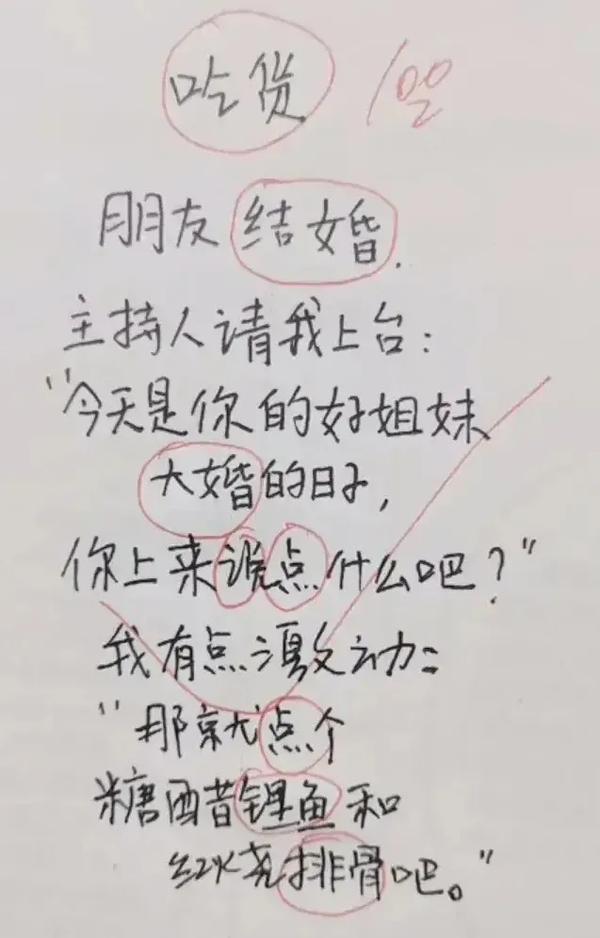 吃货 100
朋友结婚.
主持人请我上台:
"今天是你的好姐妹
大婚的日子,
你上来说点什么吧?"
我有点激动:
"那就点个
糖醋鲤鱼和
红烧排骨吧。"